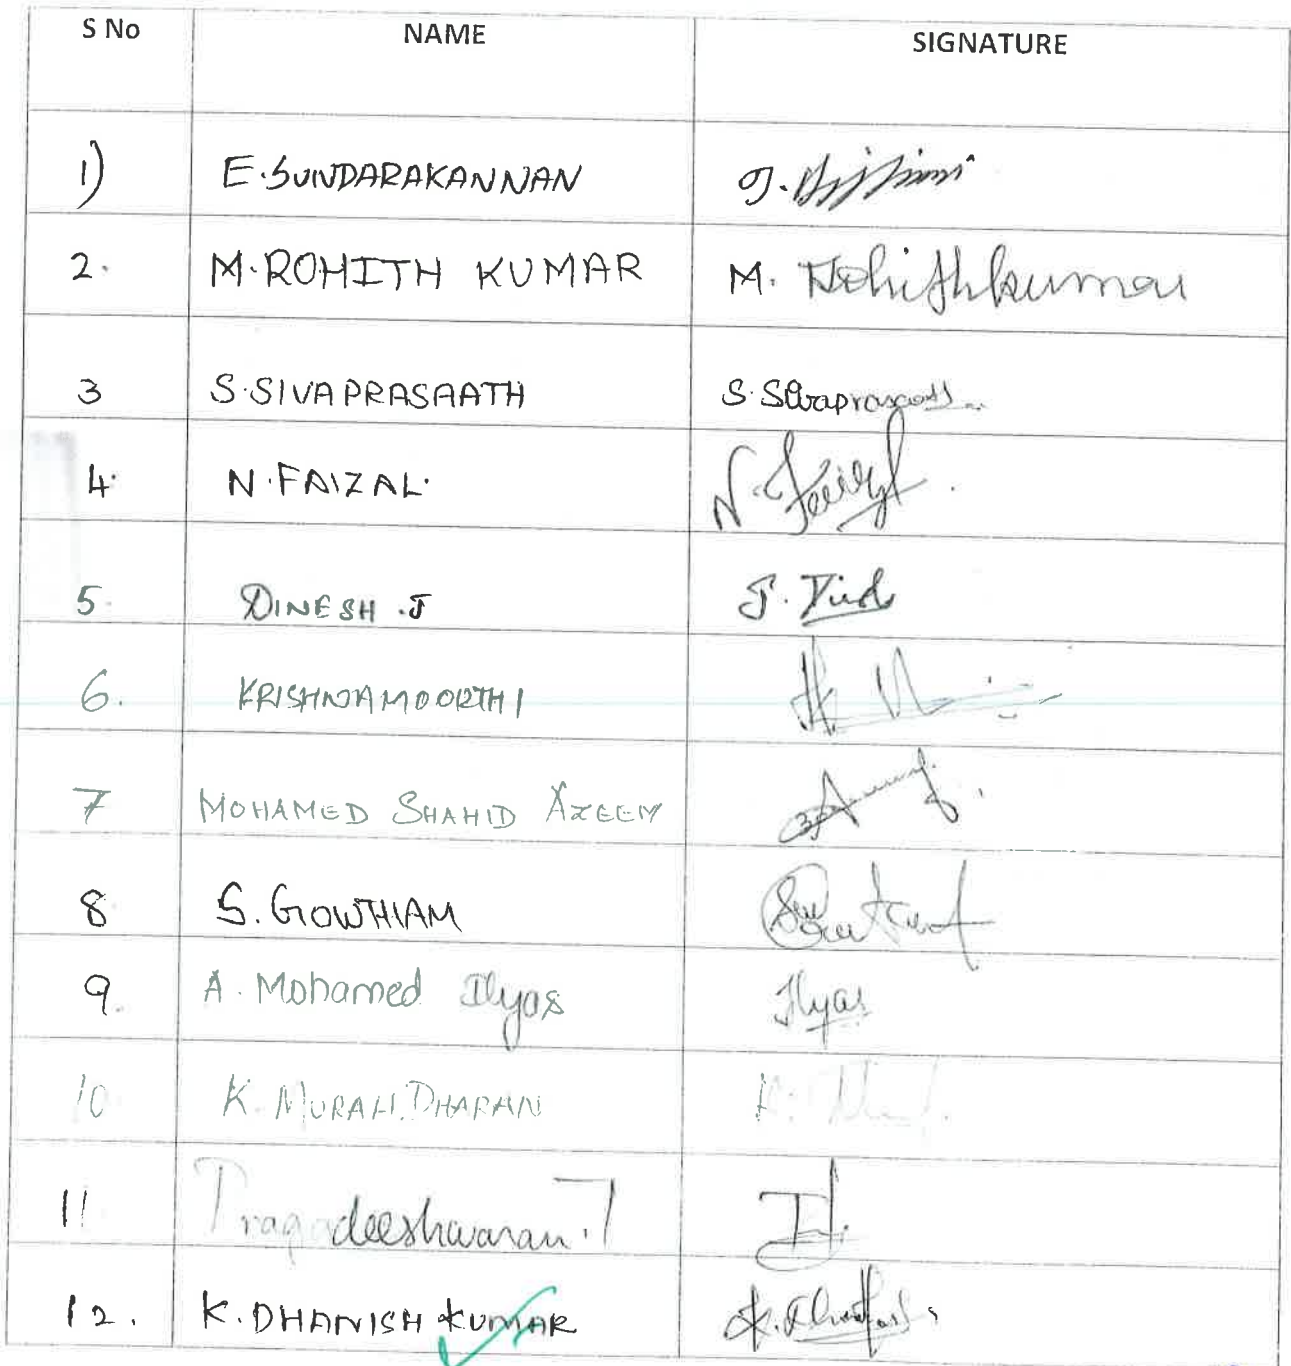 S No NAME SIGNATURE
1) E.SUNDARAKANNAN
2. M.ROHITH KUMAR M. Rohithkumar
3 S.SIVAPRASAATH S.Sivaprasaath
4. N.FAIZAL. N.Faizal.
5. DINESH.J J.
6. KRISHNAMOORTHI
7 MOHAMED SHAHID AZEEM
8 S.GOWTHAM
9. A.Mohamed Ilyas Ilyas
10 K.MURALIDHARAN K.
11 Pragadeeshwaran.T
12. K.DHANISH KUMAR K.